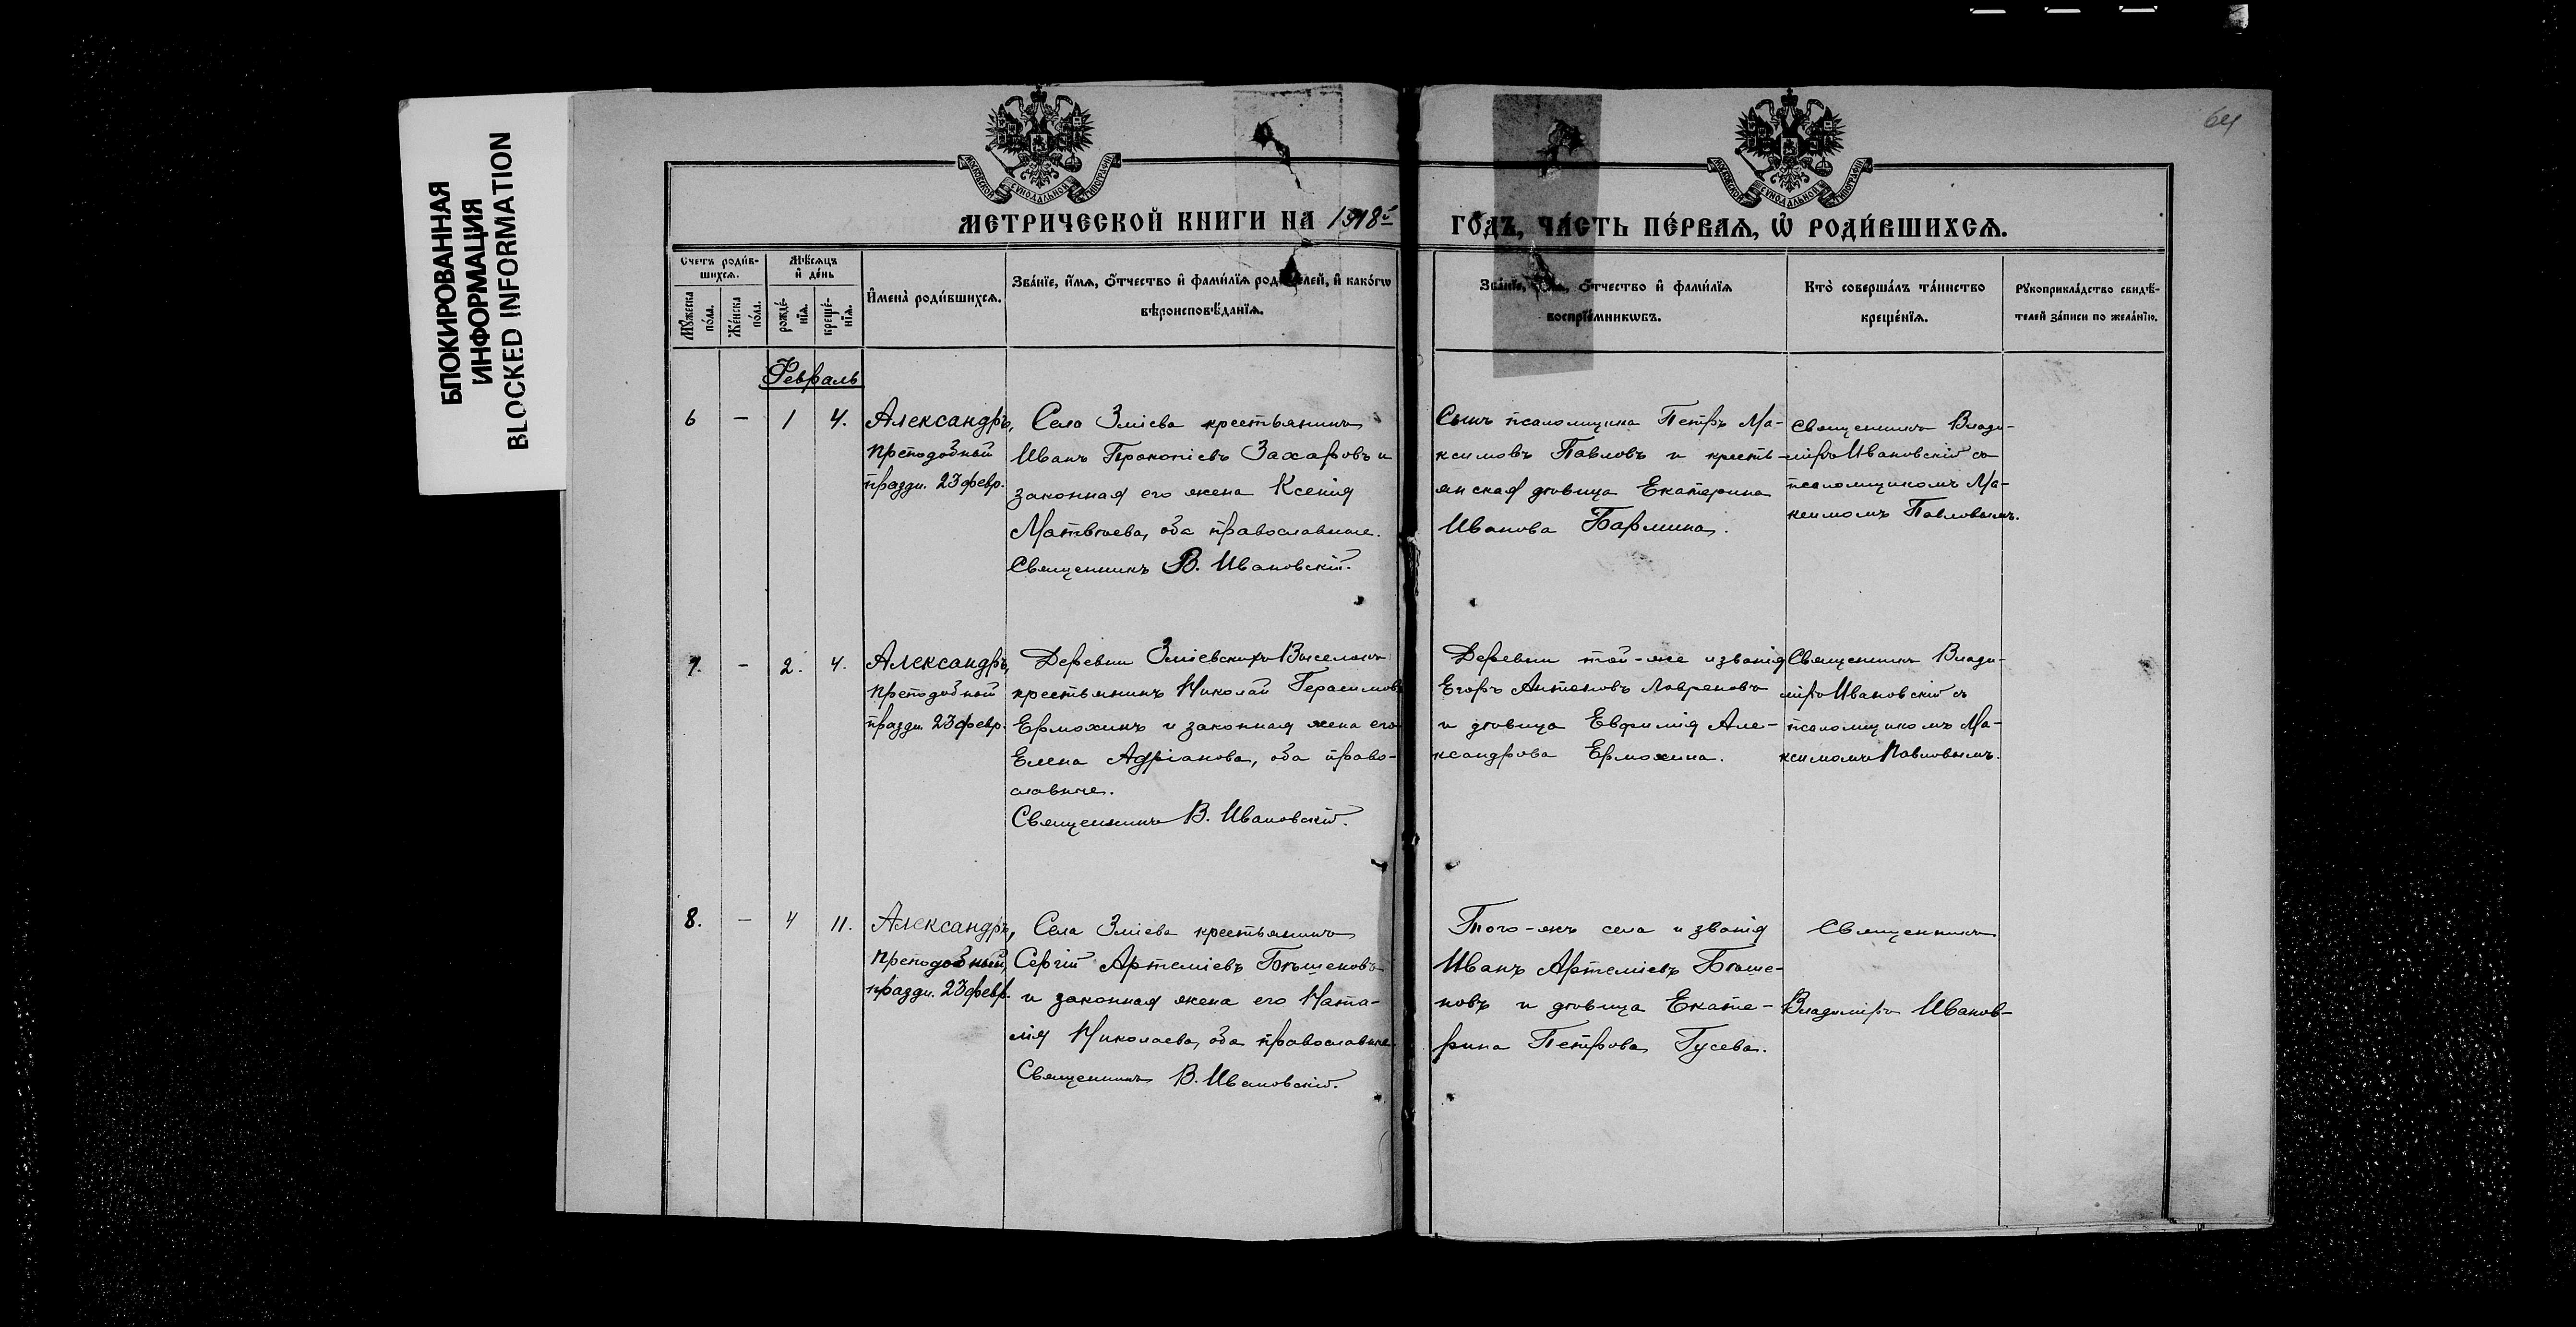 БЛОКИРОВАННАЯ
ИНФОРМАЦИЯ
BLOCKED INFORMATION
64
МОСКОВСКОЙ СѴНОДАЛЬНОЙ ТИПОГРАФІИ
МОСКОВСКОЙ СѴНОДАЛЬНОЙ ТИПОГРАФІИ
МЕТРИЧЕСКОЙ КНИГИ НА 1918й
ГО́ДЪ, ЧА́СТЬ ПЕ́РВАЯ, Ѡ҆ РОДИ́ВШИХСЯ.
Счетъ роди́в-
шихся.
Мꙋжеска
по́ла.
Же́нска
по́ла.
Мѣ́сяцъ
и҆ де́нь
рожде́-
нїя.
креще́-
нїя.
И҆мена̀ роди́вшихся.
Зва́нїе, и҆́мя, ѻ҆́тчество и҆ фами́лїя родителей, и҆ како́гѡ
вѣроисповѣ́данїя.
Зва́нїе, ѻ҆́тчество и҆ фами́лїя
воспрїе́мникѡвъ.
Кто̀ соверша́лъ та́инство
креще́нїя.
Рꙋкоприкла́дство свидѣ́-
телей за́писи по жела́нїю.
Февраль
6 — 1 4.
Александръ,
преподобный
праздн. 23 февр.
Села Зміева крестьянинъ
Иванъ Прокопіевъ Захаровъ и
законная его жена Ксенія
Матвѣева, оба православные.
Священникъ В. Ивановскій.
Сынъ псаломщика Петръ Ма-
ксимовъ Павловъ и кресть-
янская дѣвица Екатерина
Иванова Бармина.
Священникъ Влади-
міръ Ивановскій съ
псаломщикомъ Ма-
ксимомъ Павловымъ.
7. — 2. 4.
Александръ,
преподобный
праздн. 23 февр.
Деревни Зміевскихъ Выселокъ
крестьянинъ Николай Герасимовъ
Ермохинъ и законная жена его
Елена Адріанова, оба право-
славные.
Священникъ В. Ивановскій.
Деревни той-же и званія
Егоръ Антоновъ Лавреновъ
и дѣвица Евфимія Але-
ксандрова Ермохина.
Священникъ Влади-
міръ Ивановскій съ
псаломщикомъ Ма-
ксимомъ Павловымъ.
8. — 4 11.
Александръ,
преподобный,
праздн. 23 февр.
Села Зміева крестьянинъ
Сергій Артеміевъ Бѣшеновъ
и законная жена его Ната-
лія Николаева, оба православные.
Священникъ В. Ивановскій.
Того-жъ села и званія
Иванъ Артеміевъ Бѣше-
новъ и дѣвица Екате-
рина Петрова Гусева.
Священникъ
Владиміръ Иванов-